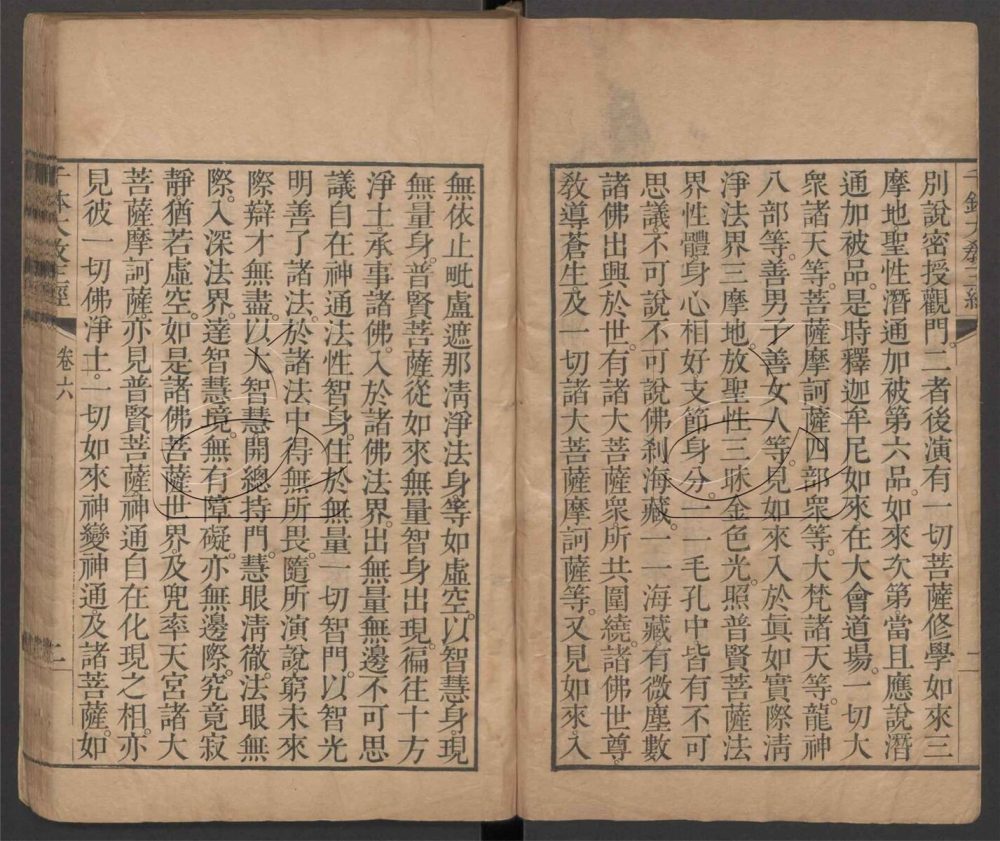 別說密授觀門。二者後演有一切菩薩修學如來三
摩地聖性潛通加被第六品。如來次第。當且應說潛
通加被品。是時釋迦牟尼如來在大會道場。一切大
衆諸天等。菩薩摩訶薩。四部衆等。大梵諸天等。龍神
八部等。善男子善女人等。見如來入於眞如實際淸
淨法界三摩地。放聖性三昧金色光。照普賢菩薩法
界性體。身心相好支節身分。一一毛孔中皆有不可
思議。不可說不可說佛剎海藏。一一海藏有微塵數
諸佛出興於世。有諸大菩薩衆所共圍繞。諸佛世尊。
敎導蒼生。及一切諸大菩薩摩訶薩等。又見如來。入
無依止毗盧遮那淸淨法身。等如虛空。以智慧身。現
無量身。普賢菩薩從如來無量智身出現。徧往十方
淨土。承事諸佛。入於諸佛法界。出無量無邊不可思
議自在神通法性智身。住於無量一切智門。以智光
明善了諸法。於諸法中得無所畏。隨所演說窮未來
際。辯才無盡。以大智慧開總持門。慧眼淸徹。法眼無
際。入深法界。達智慧境。無有障礙。亦無邊際。究竟寂
靜猶若虛空。如是諸佛菩薩世界。及兜率天宮諸大
菩薩摩訶薩。亦見普賢菩薩。神通自在化現之相。亦
見彼一切佛淨土。一切如來神變神通。及諸菩薩。如
卷六
二